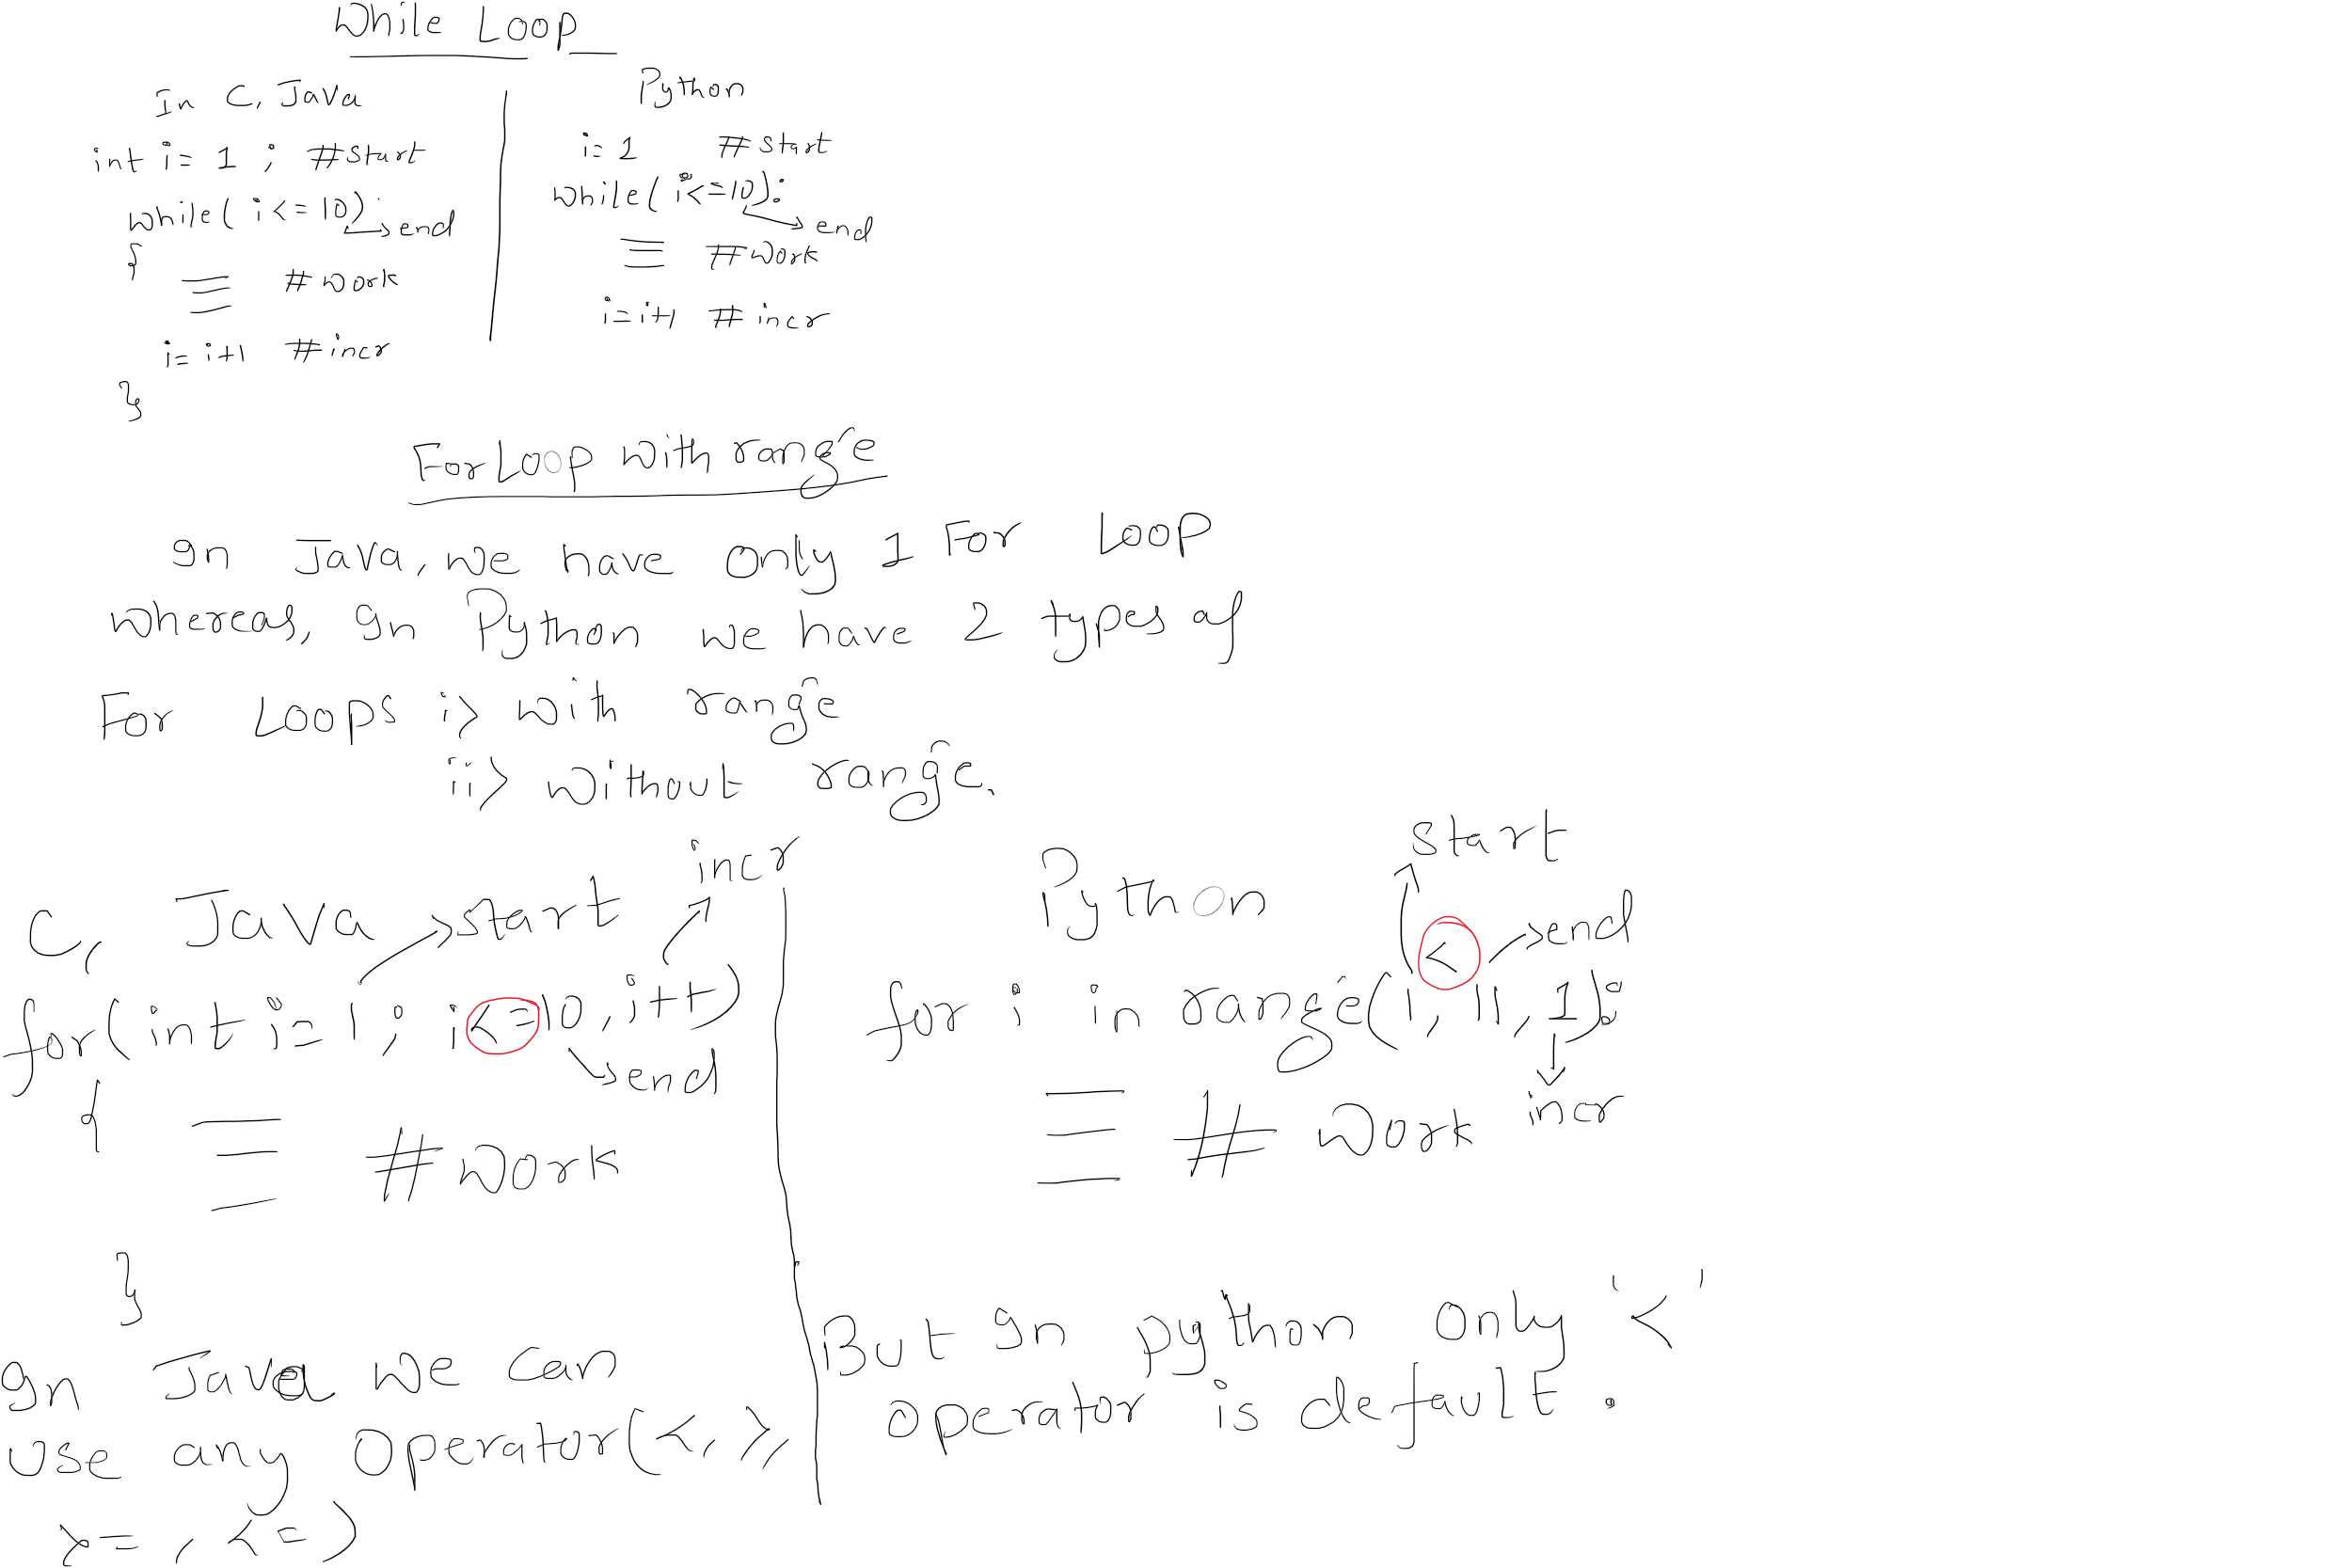 While Loop
In C, Java
int i = 1 ; #start
while( i<=10)
end
{
#work
i= i+1 #incr
}
Python
i=1 #start
while( i<=10):
end
#work
i=i+1 #incr
For Loop with range
In Java, we have only 1 For Loop
whereas, In Python we have 2 types of
For Loops i> with range
ii> without range.
C, Java
start
incr
for(int i=1; i<=10, i++)
end
{
#work
}
In Java we can
use any operator(<, >,
>=, <=)
Python
start
<
end
for i in range(1, 11, 1):
incr
# work
But In python only '<'
operator is default.